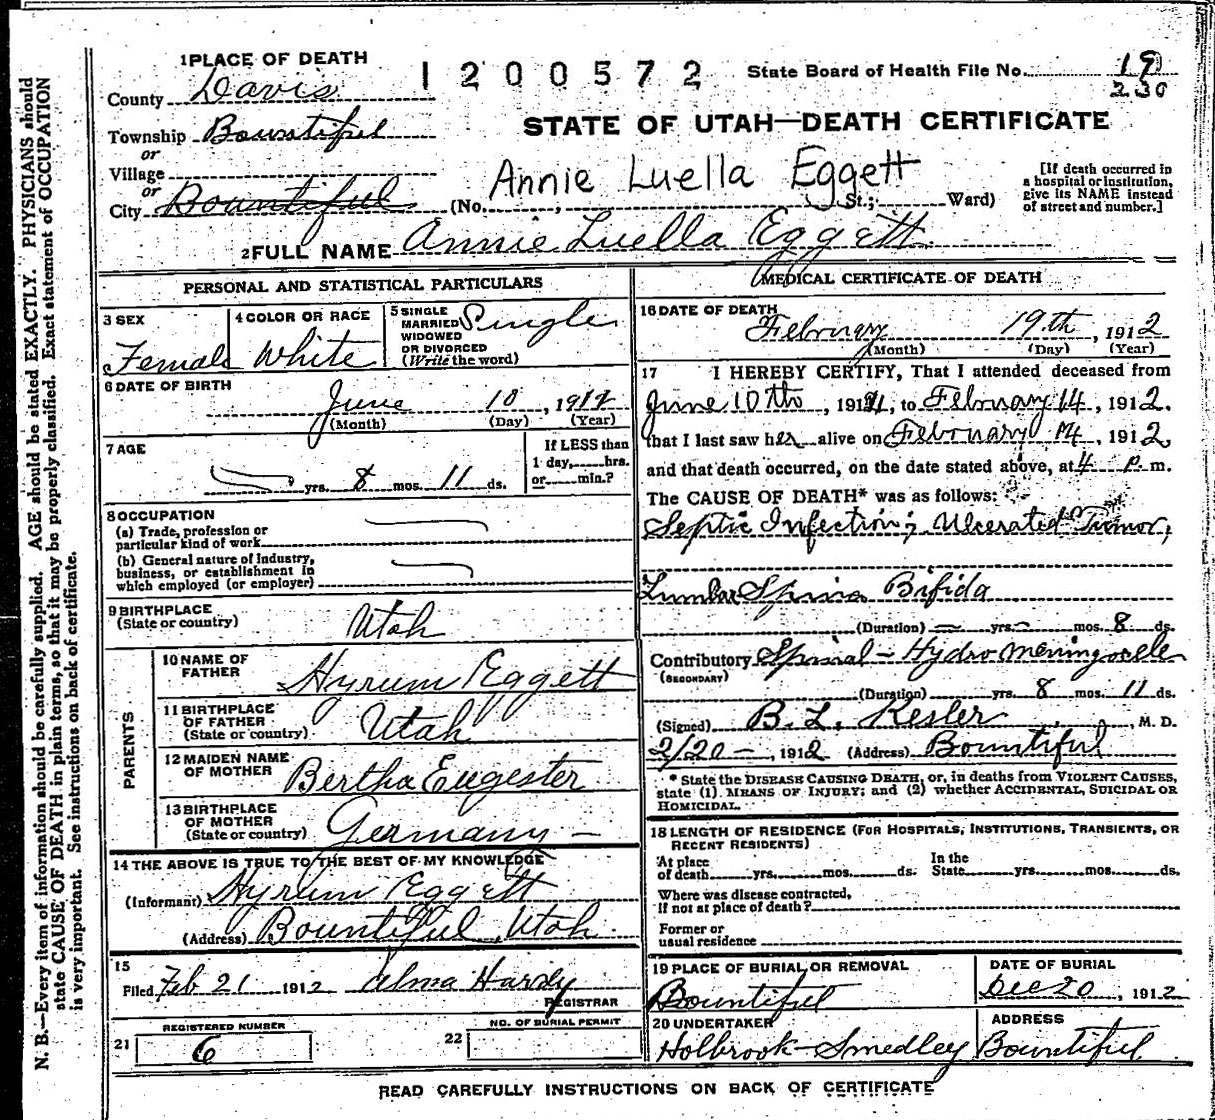 1 PLACE OF DEATH
1200572
State Board of Health File No. 19
230
County Davis
Township Bountiful
or
Village
or
City Bountiful
STATE OF UTAH—DEATH CERTIFICATE
Annie Luella Eggett
(No. , St.; Ward)
[If death occurred in
a hospital or institution,
give its NAME instead
of street and number.]
2 FULL NAME Annie Luella Eggett
PERSONAL AND STATISTICAL PARTICULARS
3 SEX
Female
4 COLOR OR RACE
White
5 SINGLE
MARRIED
WIDOWED
OR DIVORCED
(Write the word)
Single
6 DATE OF BIRTH
June 10, 191
(Month) (Day) (Year)
7 AGE
yrs. 8 mos. 11 ds.
If LESS than
1 day, hrs.
or min.?
8 OCCUPATION
(a) Trade, profession or
particular kind of work
(b) General nature of industry,
business, or establishment in
which employed (or employer)
9 BIRTHPLACE
(State or country)
Utah
PARENTS
10 NAME OF
FATHER
Hyrum Eggett
11 BIRTHPLACE
OF FATHER
(State or country)
Utah
12 MAIDEN NAME
OF MOTHER
Bertha Eugester
13 BIRTHPLACE
OF MOTHER
(State or country)
Germany —
14 THE ABOVE IS TRUE TO THE BEST OF MY KNOWLEDGE
(Informant) Hyrum Eggett
(Address) Bountiful, Utah
15
Filed Feb 21 1912 Alma Hardy
REGISTRAR
21
REGISTERED NUMBER
6
22
NO. OF BURIAL PERMIT
MEDICAL CERTIFICATE OF DEATH
16 DATE OF DEATH
February 19th, 1912
(Month) (Day) (Year)
17 I HEREBY CERTIFY, That I attended deceased from
June 10th, 1911, to February 14, 1912.
that I last saw her alive on February 14, 1912,
and that death occurred, on the date stated above, at 4 p.m.
The CAUSE OF DEATH* was as follows:
Septic Infection; Ulcerated Tumor,
Lumbar Spina Bifida
(Duration) — yrs. — mos. 8 ds.
Contributory Spinal - Hydromeningocele
(SECONDARY)
(Duration) yrs. 8 mos. 11 ds.
(Signed) B. L. Kesler, M. D.
2/20 —, 1912 (Address) Bountiful
* State the DISEASE CAUSING DEATH, or, in deaths from VIOLENT CAUSES,
state (1) MEANS OF INJURY; and (2) whether ACCIDENTAL, SUICIDAL OR
HOMICIDAL.
18 LENGTH OF RESIDENCE (FOR HOSPITALS, INSTITUTIONS, TRANSIENTS, OR
RECENT RESIDENTS)
At place
of death yrs. mos. ds.
In the
State yrs. mos. ds.
Where was disease contracted,
if not at place of death?
Former or
usual residence
19 PLACE OF BURIAL OR REMOVAL
Bountiful
DATE OF BURIAL
Dec 20, 1912
20 UNDERTAKER
Holbrook-Smedley
ADDRESS
Bountiful
READ CAREFULLY INSTRUCTIONS ON BACK OF CERTIFICATE
N. B.—Every item of information should be carefully supplied. AGE should be stated EXACTLY. PHYSICIANS should
state CAUSE OF DEATH in plain terms, so that it may be properly classified. Exact statement of OCCUPATION
is very important. See instructions on back of certificate.